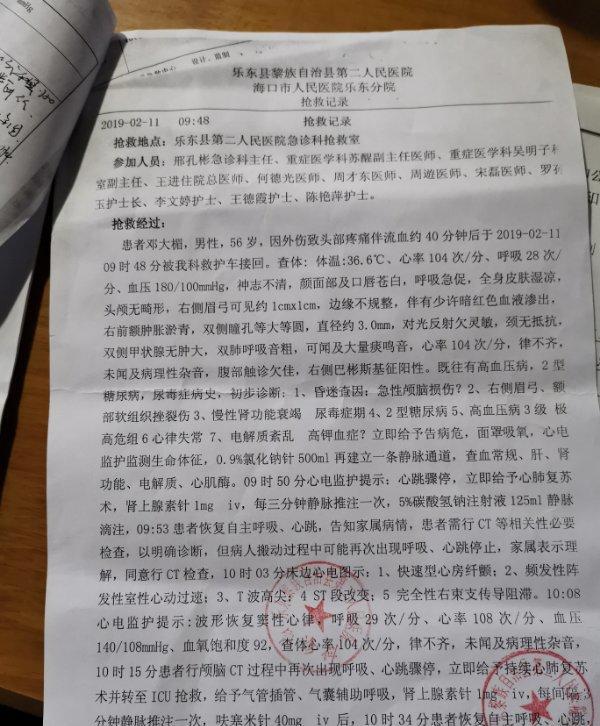 设计、监制
乐东县黎族自治县第二人民医院
海口市人民医院乐东分院
抢救记录
2019-02-11 09:48 抢救记录
抢救地点：乐东县第二人民医院急诊科抢救室
参加人员：邢孔彬急诊科主任、重症医学科苏醒副主任医师、重症医学科吴明子科
室副主任、王进住院总医师、何德光医师、周才东医师、周遊医师、宋磊医师、罗存
玉护士长、李文婷护士、王德霞护士、陈艳萍护士。
抢救经过：
患者邓大楣，男性，56 岁，因外伤致头部疼痛伴流血约 40 分钟后于 2019-02-11
09 时 48 分被我科救护车接回。查体：体温:36.6℃、心率 104 次/分、呼吸 28 次/
分、血压 180/100mmHg，神志不清，颜面部及口唇苍白，呼吸急促，全身皮肤湿凉，
头颅无畸形，右侧眉弓可见约 1cmx1cm，边缘不规整，伴有少许暗红色血液渗出，
右前额肿胀淤青，双侧瞳孔等大等圆，直径约 3.0mm，对光反射欠灵敏，颈无抵抗，
双侧甲状腺无肿大，双肺呼吸音粗，可闻及大量痰鸣音，心率 104 次/分，律不齐，
未闻及病理性杂音，腹部触诊欠佳，右侧巴彬斯基征阳性。既往有高血压病，2 型
糖尿病，尿毒症病史，初步诊断：1、昏迷查因：急性颅脑损伤？2、右侧眉弓、额
部软组织挫裂伤 3、慢性肾功能衰竭 尿毒症期 4、2 型糖尿病 5、高血压病 3 级 极
高危组 6 心律失常 7、电解质紊乱 高钾血症？立即给予告病危，面罩吸氧，心电
监护监测生命体征，0.9%氯化钠针 500ml 再建立一条静脉通道，查血常规、肝、肾
功能、电解质、心肌酶。09 时 50 分心电监护提示：心跳骤停，立即给予心肺复苏
术，肾上腺素针 1mg iv，每三分钟静脉推注一次，5%碳酸氢钠注射液 125ml 静脉
滴注，09:53 患者恢复自主呼吸、心跳，告知家属病情，患者需行 CT 等相关性必要
检查，以明确诊断，但病人搬动过程中可能再次出现呼吸、心跳停止，家属表示理
解，同意行 CT 检查，10 时 03 分床边心电图示：1、快速型心房纤颤；2、频发性阵
发性室性心动过速；3、T 波高尖；4 ST 段改变；5 完全性右束支传导阻滞。10:08
心电监护提示:波形恢复窦性心律，呼吸 29 次/分、心率 108 次/分、血压
140/108mmHg、血氧饱和度 92，查体心率 104 次/分，律不齐，未闻及病理性杂音，
10 时 15 分患者行颅脑 CT 过程中再次出现呼吸、心跳骤停，立即给予持续心肺复苏
术并转至 ICU 抢救，给予气管插管、气囊辅助呼吸，肾上腺素针 1mg iv，每间隔 3
分钟静脉推注一次，呋塞米针 40mg iv 后，10 时 34 分患者恢复自主呼吸、心跳，